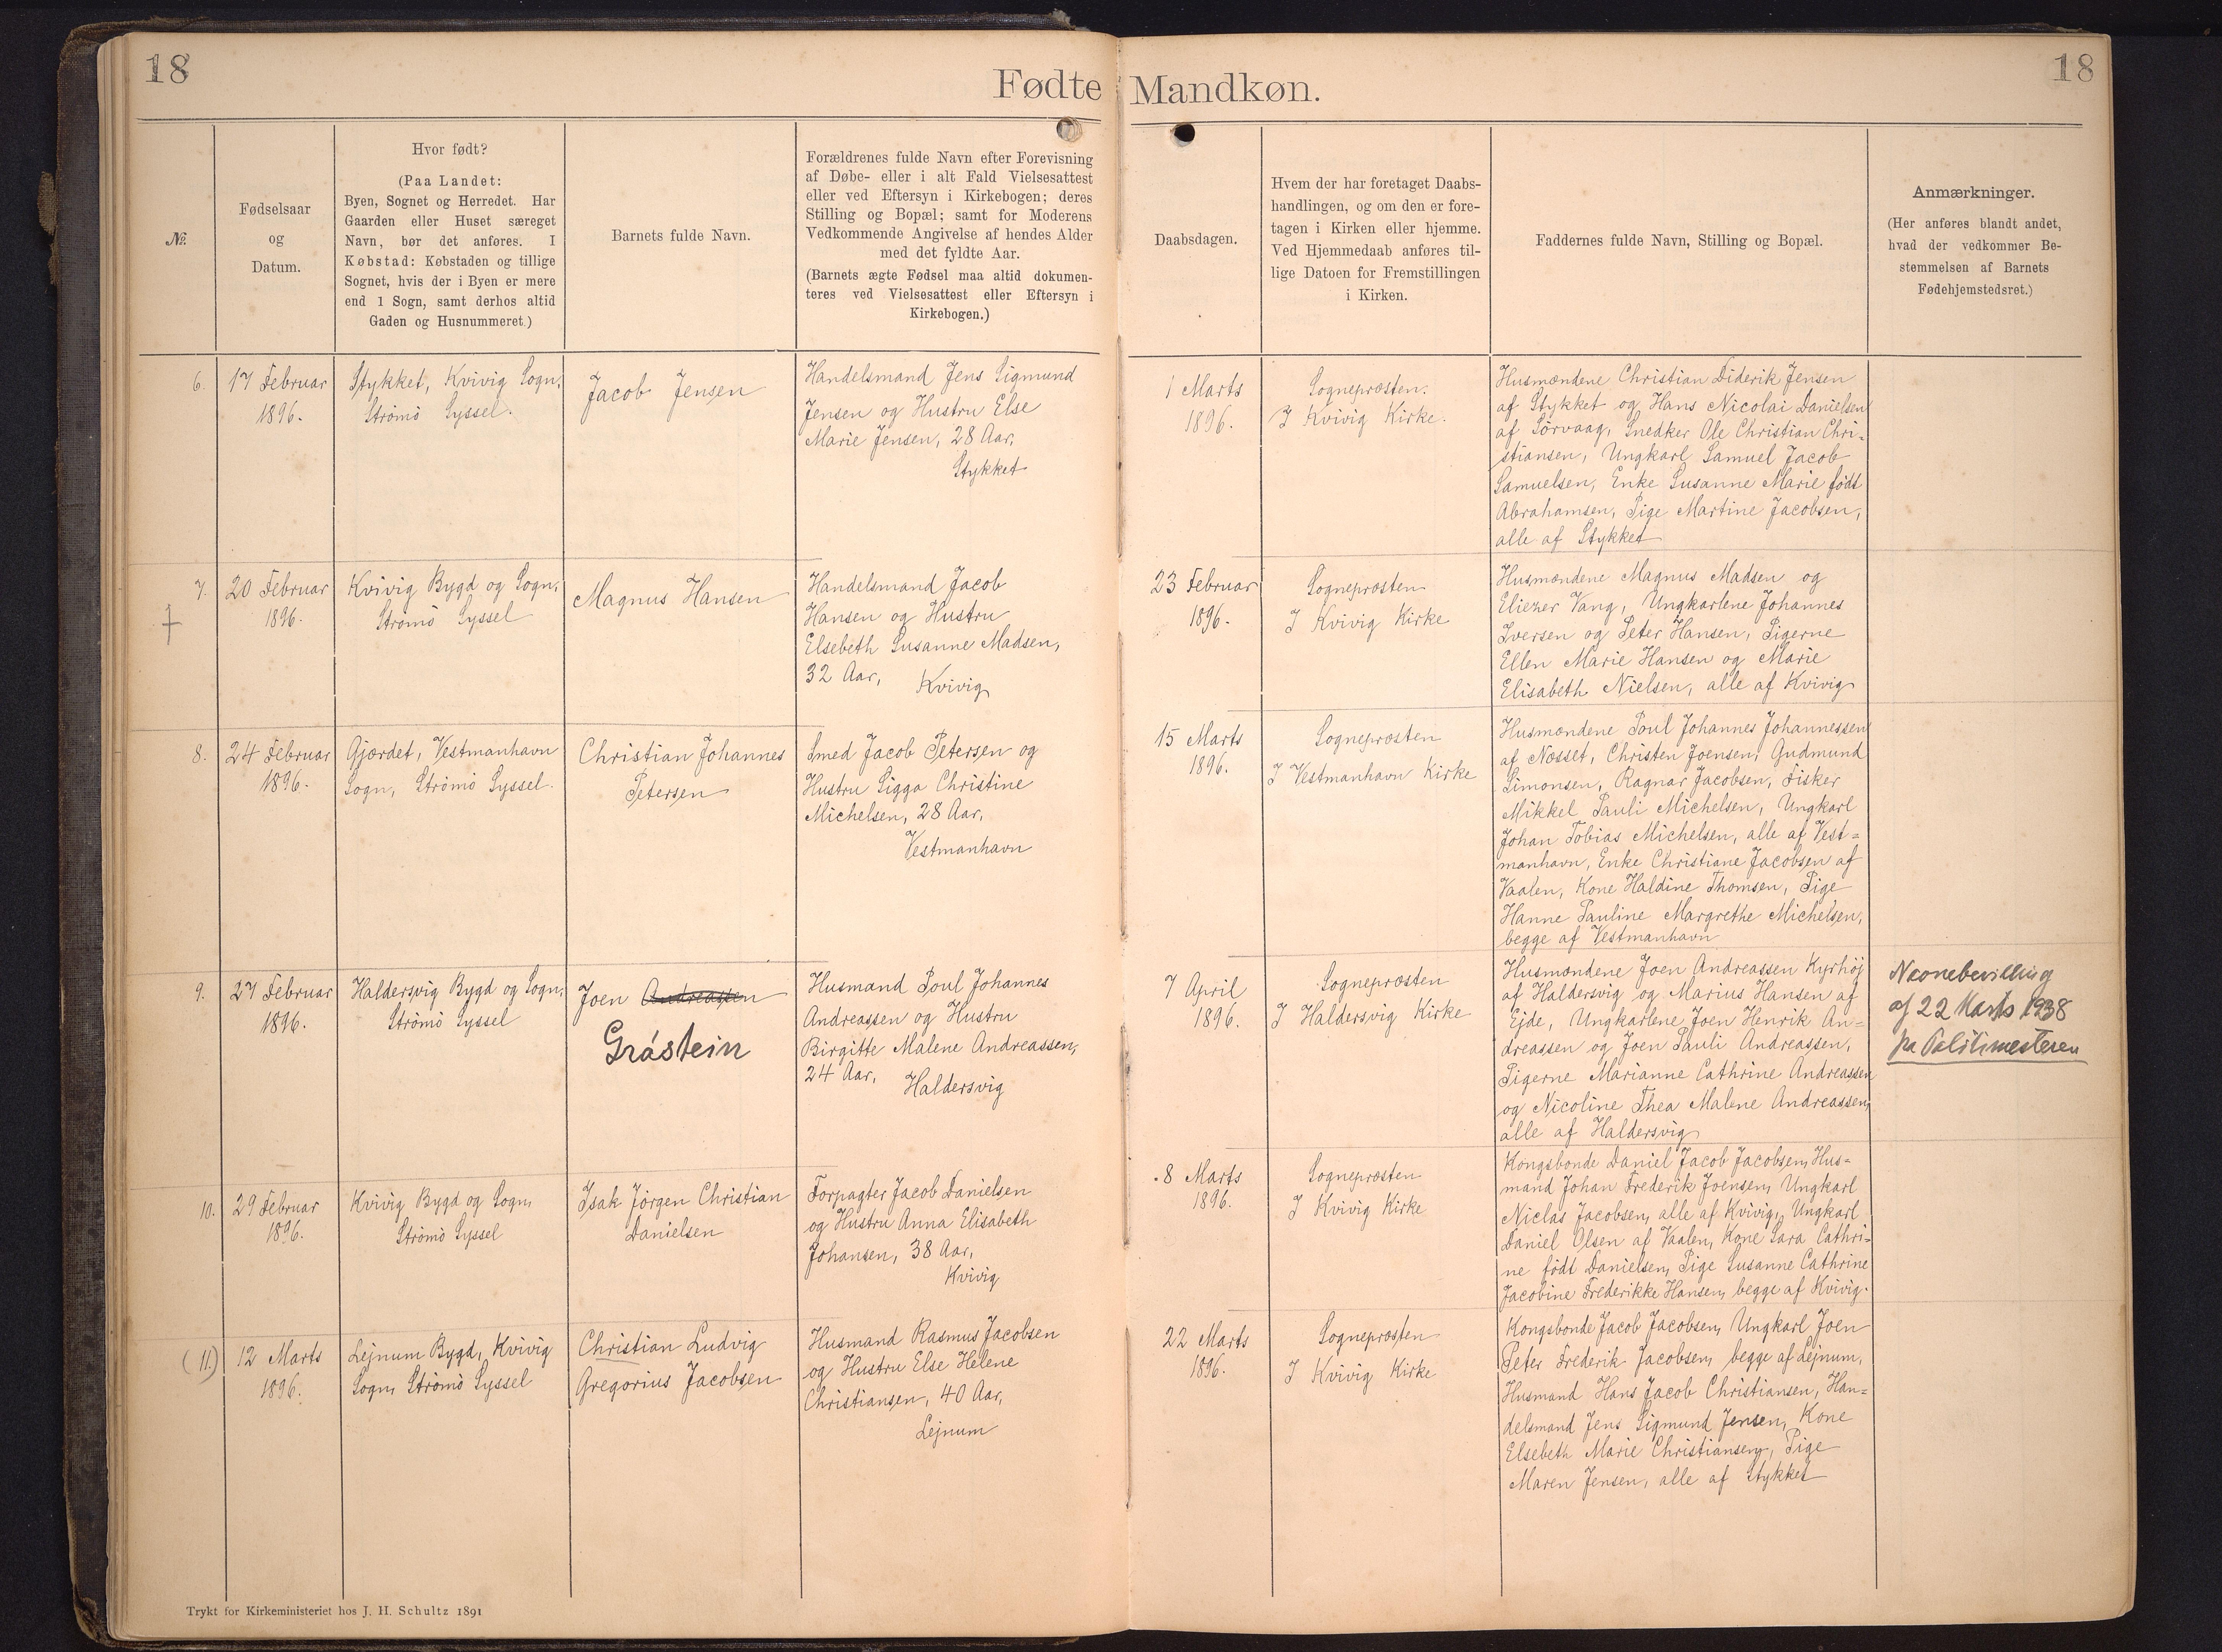 18
Fødte Mandkøn.
18
№.
Fødselsaar
og
Datum.
Hvor født?
(Paa Landet:
Byen, Sognet og Herredet. Har
Gaarden eller Huset særeget
Navn, bør det anføres. I
Købstad: Købstaden og tillige
Sognet, hvis der i Byen er mere
end 1 Sogn, samt derhos altid
Gaden og Husnummeret.)
Barnets fulde Navn.
Forældrenes fulde Navn efter Forevisning
af Døbe- eller i alt Fald Vielsesattest
eller ved Eftersyn i Kirkebogen; deres
Stilling og Bopæl; samt for Moderens
Vedkommende Angivelse af hendes Alder
med det fyldte Aar.
(Barnets ægte Fødsel maa altid dokumen-
teres ved Vielsesattest eller Eftersyn i
Kirkebogen.)
Daabsdagen.
Hvem der har foretaget Daabs-
handlingen, og om den er fore-
tagen i Kirken eller hjemme.
Ved Hjemmedaab anføres til-
lige Datoen for Fremstillingen
i Kirken.
Faddernes fulde Navn, Stilling og Bopæl.
Anmærkninger.
(Her anføres blandt andet,
hvad der vedkommer Be-
stemmelsen af Barnets
Fødehjemstedsret.)
6.
17 Februar
1896.
Stykket, Kvivig Sogn,
Strömö Syssel.
Jacob Jensen
Handelsmand Jens Sigmund
Jensen og Hustru Else
Marie Jensen, 28 Aar,
Stykket
1 Marts
1896.
Sognepræsten.
I Kvivig Kirke.
Husmændene Christian Diderik Jensen
af Stykket og Hans Nicolai Danielsen
af Sörvaag, Snedker Ole Christian Chri-
stiansen, Ungkarl Samuel Jacob
Samuelsen, Enke Susanne Marie född
Abrahamsen, Pige Martine Jacobsen,
alle af Stykket
7.
†
20 Februar
1896.
Kvivig Bygd og Sogn,
Strömö Syssel
Magnus Hansen
Handelsmand Jacob
Hansen og Hustru
Elsebeth Susanne Madsen,
32 Aar,
Kvivig
23 Februar
1896.
Sognepræsten
I Kvivig Kirke
Husmændene Magnus Madsen og
Eliezer Vang, Ungkarlene Johannes
Iversen og Peter Hansen, Pigerne
Ellen Marie Hansen og Marie
Elisabeth Nielsen, alle af Kvivig
8.
24 Februar
1896.
Gjærdet, Vestmanhavn
Sogn, Strömö Syssel.
Christian Johannes
Petersen
Smed Jacob Petersen og
Hustru Sigga Christine
Michelsen, 28 Aar,
Vestmanhavn
15 Marts
1896.
Sognepræsten
I Vestmanhavn Kirke
Husmændene Poul Johannes Johannessen
af Næsset, Christen Joensen, Gudmund
Simonsen, Ragnar Jacobsen, Fisker
Mikkel Pauli Michelsen, Ungkarl
Johan Tobias Michelsen, alle af Vest-
manhavn, Enke Christiane Jacobsen af
Vaalen, Kone Haldine Thomsen, Pige
Hanne Pauline Margrethe Michelsen,
begge af Vestmanhavn
9.
27 Februar
1896.
Haldersvig Bygd og Sogn,
Strömö Syssel
Joen Andreassen
Grástein
Husmand Poul Johannes
Andreassen og Hustru
Birgitte Malene Andreassen,
24 Aar,
Haldersvig
7 April
1896.
Sognepræsten
I Haldersvig Kirke
Husmændene Joen Andreassen Kyrhöj
af Haldersvig og Marius Hansen af
Ejde, Ungkarlene Joen Henrik An-
dreassen og Joen Pauli Andreassen,
Pigerne Marianne Cathrine Andreassen
og Nicoline Thea Malene Andreassen,
alle af Haldersvig
Navnebevilling
af 22 Marts 1938
fra Politimesteren
10.
29 Februar
1896.
Kvivig Bygd og Sogn,
Strömö Syssel
Isak Jörgen Christian
Danielsen
Forpagter Jacob Danielsen
og Hustru Anna Elisabeth
Johansen, 38 Aar,
Kvivig
8 Marts
1896.
Sognepræsten
I Kvivig Kirke
Kongsbonde Daniel Jacob Jacobsen, Hus-
mand Johan Frederik Joensen, Ungkarl
Niclas Jacobsen, alle af Kvivig, Ungkarl
Daniel Olsen af Vaalen, Kone Sara Cathri-
ne född Danielsen, Pige Susanne Cathrine
Jacobine Frederikke Hansen, begge af Kvivig.
(11.)
12 Marts
1896.
Lejnum Bygd, Kvivig
Sogn, Strömö Syssel
Christian Ludvig
Gregorius Jacobsen
Husmand Rasmus Jacobsen
og Hustru Else Helene
Christiansen, 40 Aar,
Lejnum
22 Marts
1896.
Sognepræsten
I Kvivig Kirke
Kongsbonde Jacob Jacobsen, Ungkarl Joen
Peter Frederik Jacobsen, begge af Lejnum,
Husmand Hans Jacob Christiansen, Han-
delsmand Jens Sigmund Jensen, Kone
Elsebeth Marie Christiansen, Pige
Maren Jensen, alle af Stykket
Trykt for Kirkeministeriet hos J. H. Schultz 1891